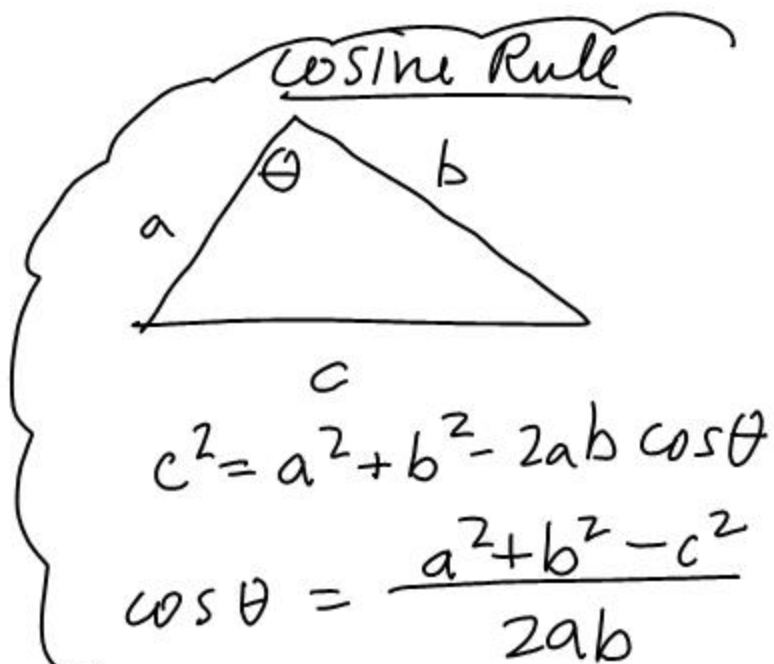 Cosine Rule
θ
b
a
c
c² = a² + b² - 2ab cosθ
cosθ = a² + b² - c² / 2ab